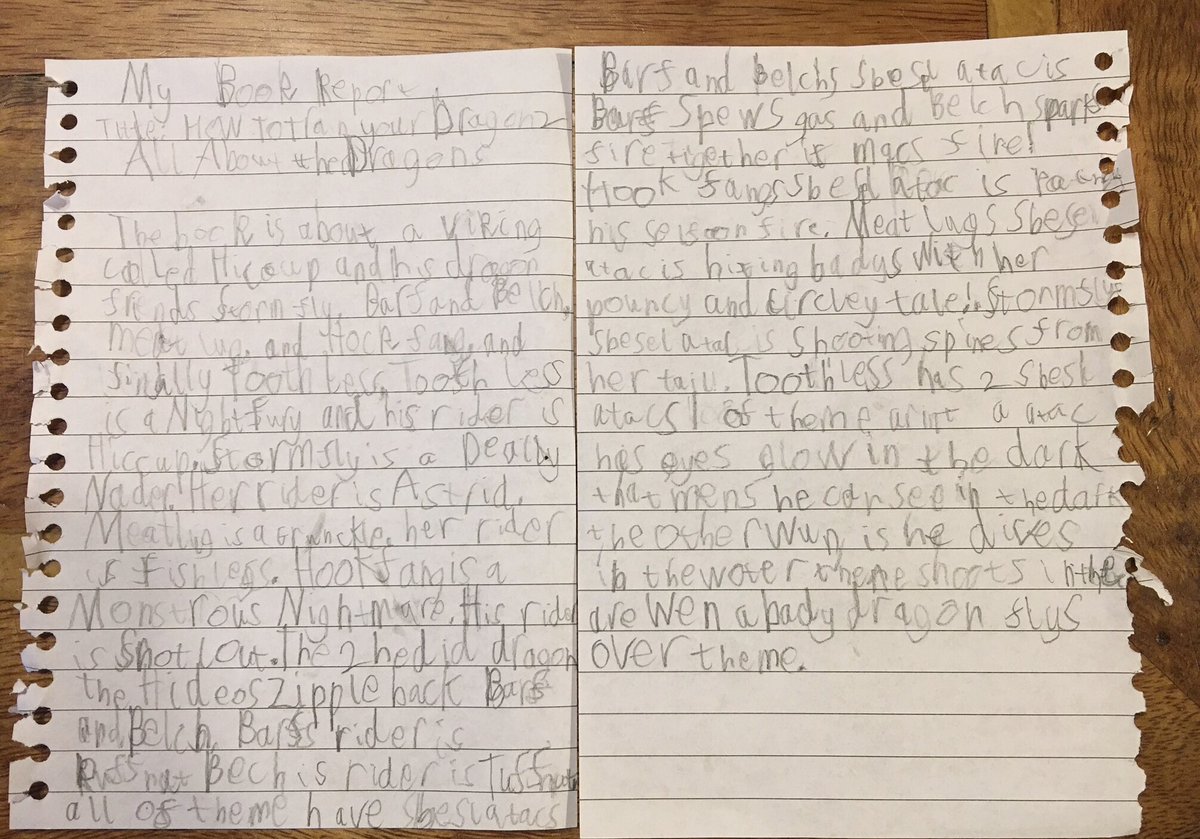 My Book Report
Title: How to tran your Dragon 2
All About the Dragons
The bock is about a Viking
called Hiccup and his dragon
friends stormfly, Barf and Belch,
meat lug, and Hock fang, and
finally Tooth Less. Tooth Less
is a Night fury and his rider is
Hiccup. Stormfly is a Deally
Nader. Her rider is Astrid.
Meatlug is a grunckle. her rider
is Fishlegs. Hookfang is a
Monstrous Nightmare. His rider
is Snotlout. The 2 hedid dragon
the Hideos Zipple back Barf
and Belch. Barfs rider is
Ruffnut Bech is rider is Tuffnut
all of theme have sbeslatacs
Barf and Belchs sbesl atac is
Barf Spews gas and Belch sparks
fire together it macs fire!
Hook fangs sbesl atac is
his self on fire. Meat lugs sbesel
atac is hiting badys with her
bouncy and circley tale! Stormflys
sbesel atac is shooting spines from
her taju. Toothless has 2 sbesl
atacs 1 of theme arint a atac
his eyes glow in the dark
that mens he can see in the dark
the other wun is he dives
in the woter theme shorts in the
are wen a bady dragon flys
over theme.